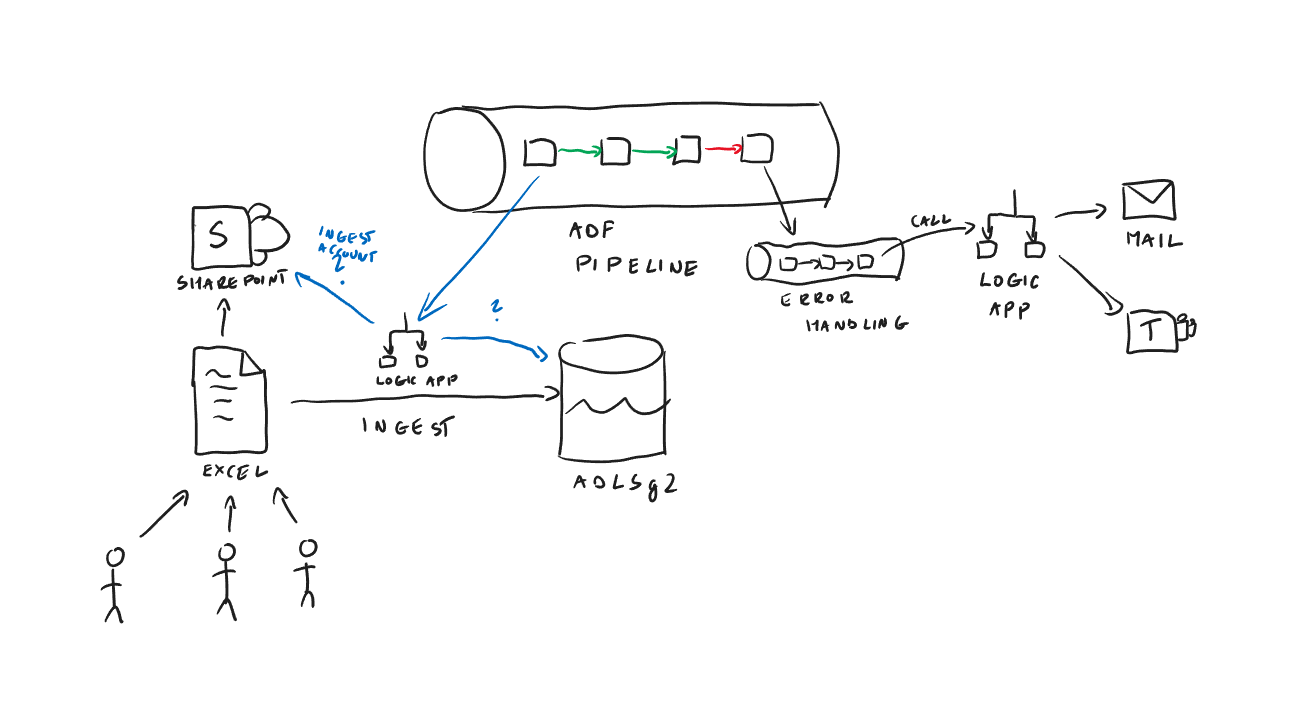 ADF
PIPELINE
S
SHAREPOINT
INGEST
ACCOUNT
?
?
LOGIC APP
INGEST
EXCEL
ADLSg2
ERROR
HANDLING
CALL
LOGIC
APP
MAIL
T